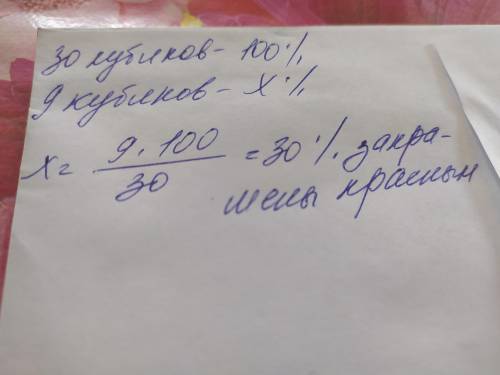 30 кубиков - 100%
9 кубиков - х%
х = 9 · 100 / 30 = 30% закра-
шены красным